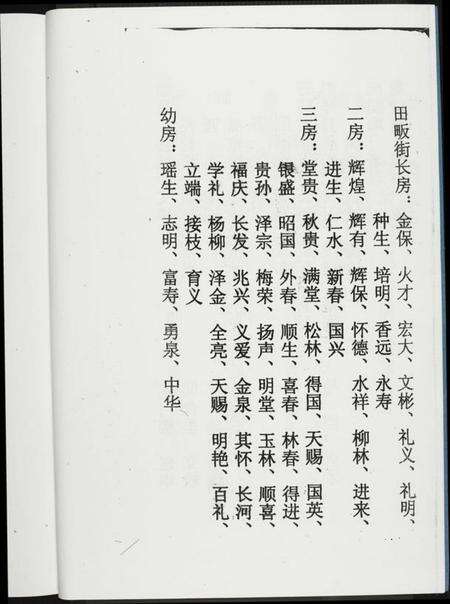 田畈街长房：金保、火才、宏大、文彬、礼义、礼明、
种生、培明、香远、永寿
二房：辉煌、辉有、辉保、怀德、水祥、柳林、进来、
进生、仁水、新春、国兴
三房：堂贵、秋贵、满堂、松林、得国、天赐、国英、
银盛、昭国、外春、顺生、喜春、林春、得进、
贵孙、泽宗、梅荣、扬声、明堂、玉林、顺喜、
福庆、长发、兆兴、义爱、金泉、其怀、长河、
学礼、杨柳、泽金、全亮、天赐、明艳、百礼、
立端、接枝、育义
幼房：瑶生、志明、富寿、勇泉、中华